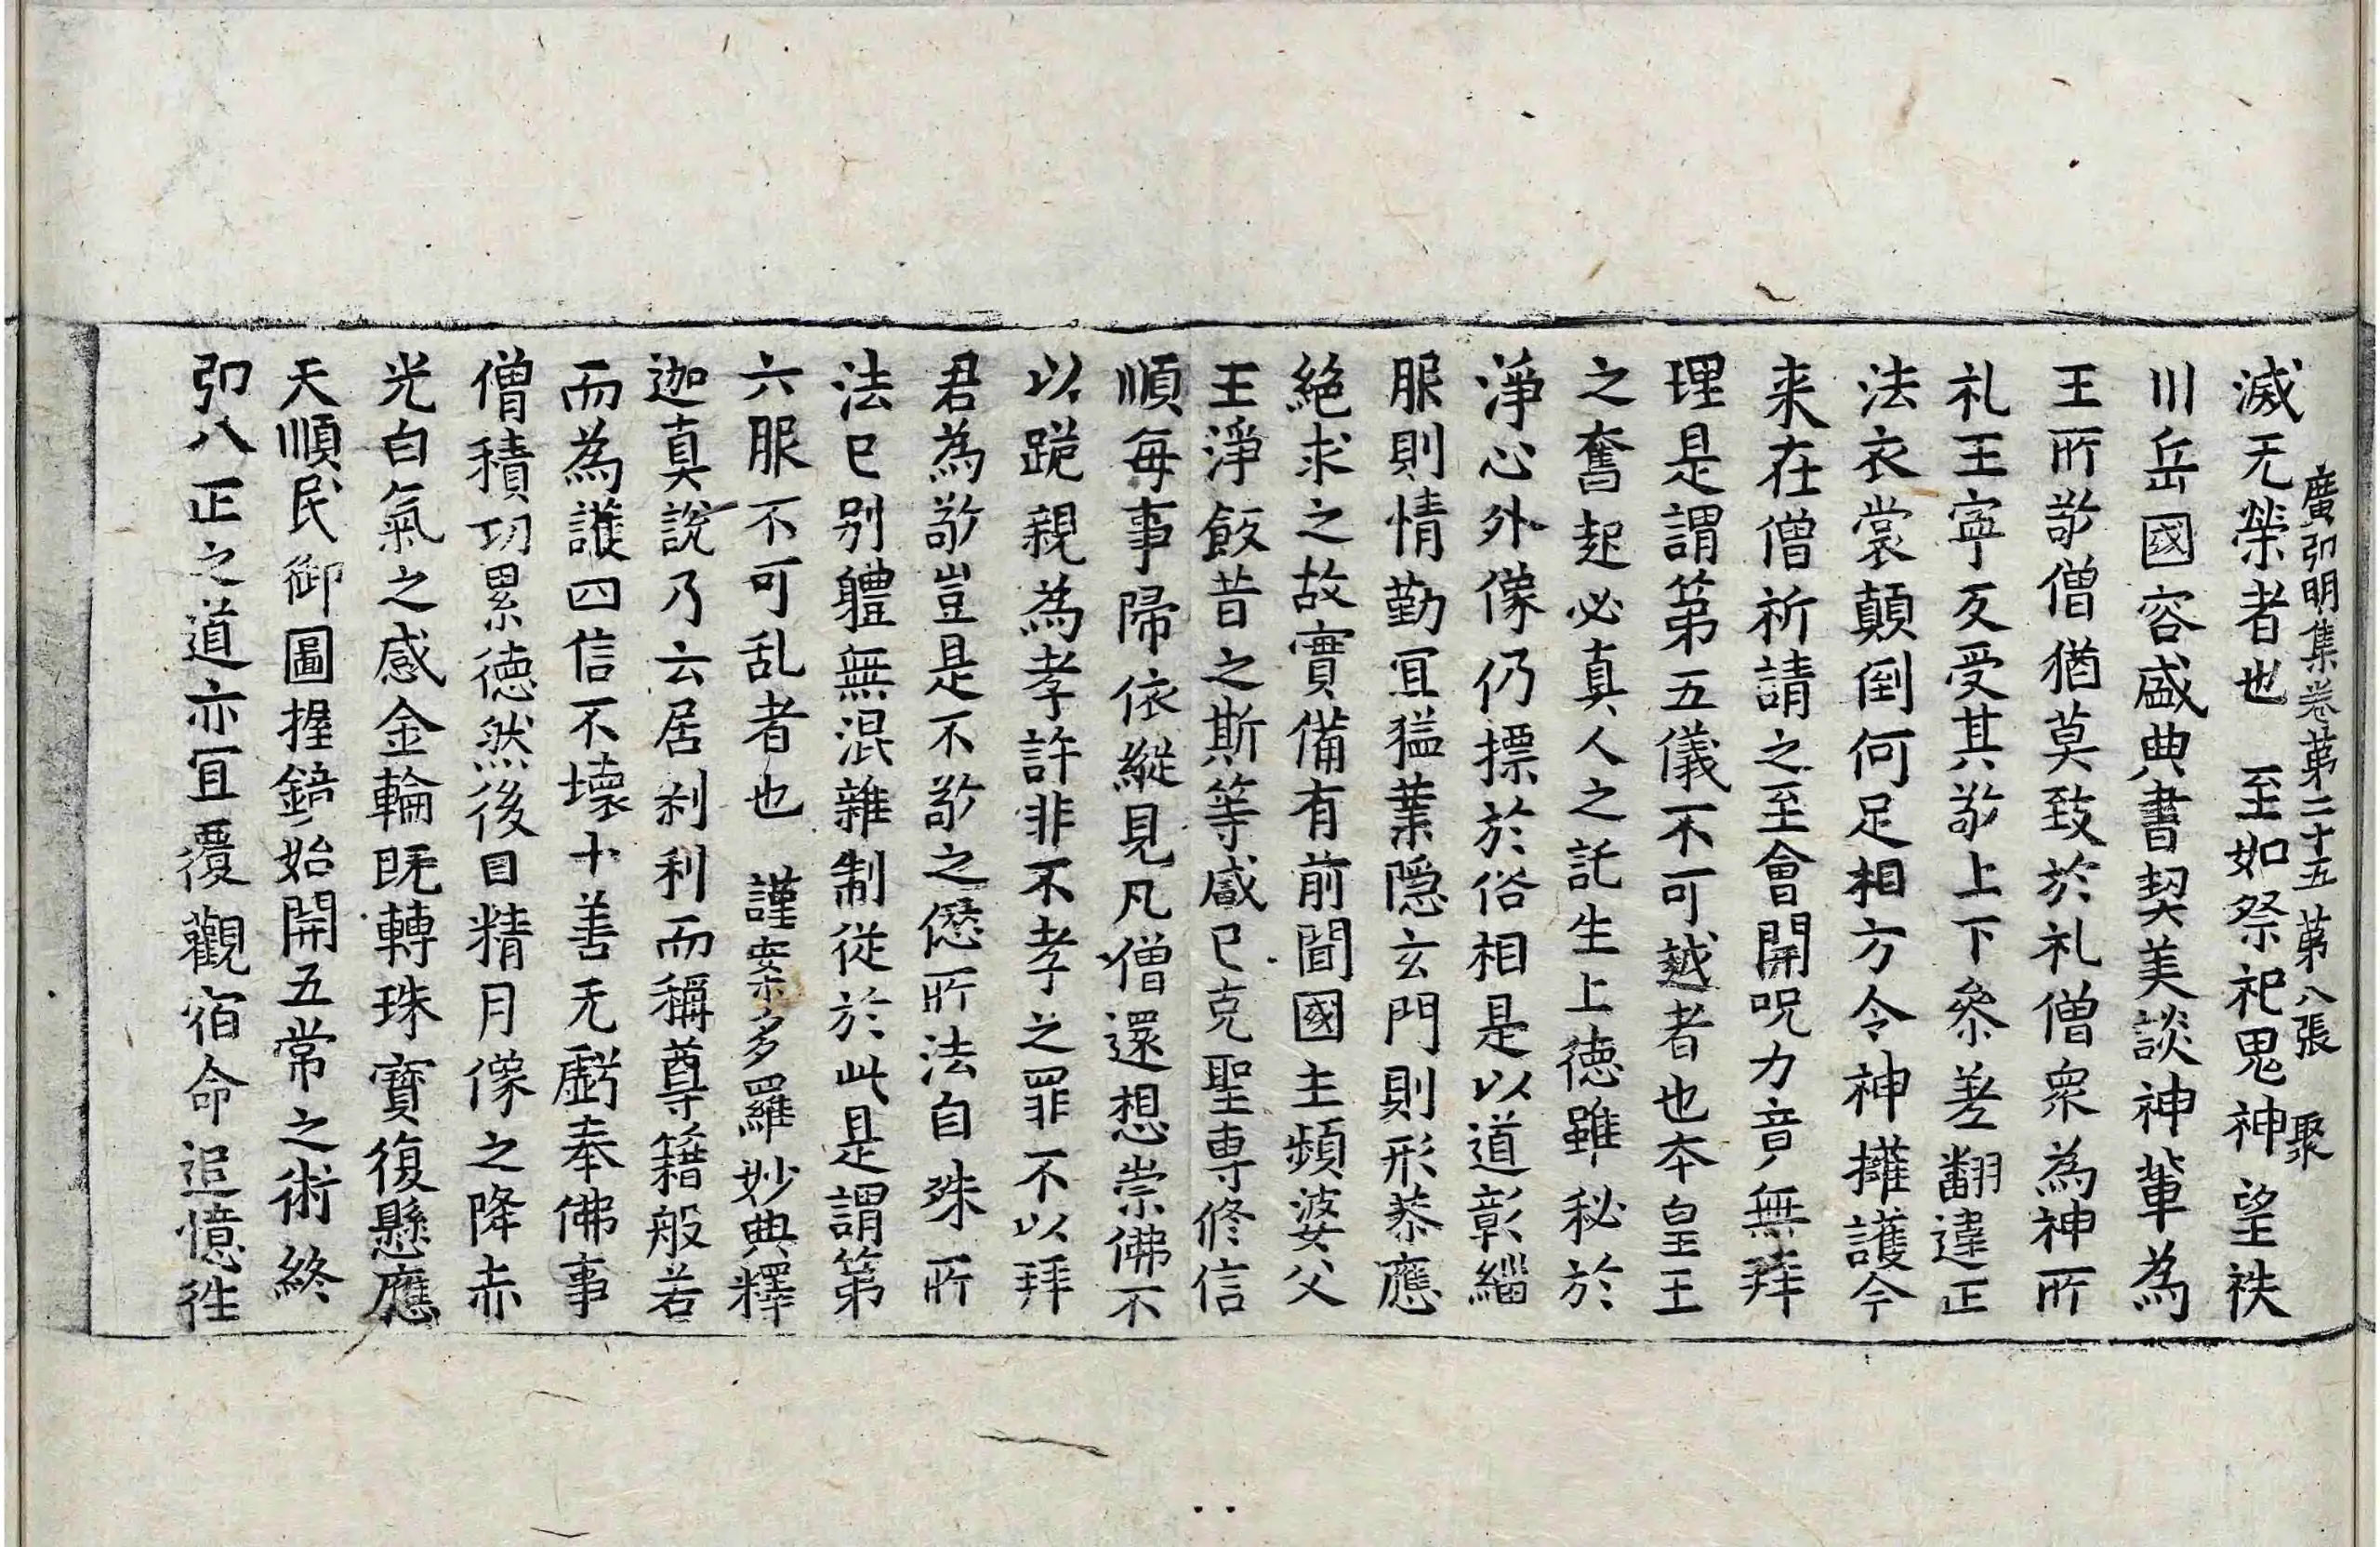 廣弘明集卷第二十五 第八張 聚
滅无榮者也 至如祭祀鬼神望袟
川岳國容盛典書契美談神輩為
王所敬僧猶莫致於礼僧衆為神所
礼王寧反受其敬上下叅差翻違正
法衣裳顛倒何足相方令神擁護今
来在僧祈請之至會開呪力音無拜
理是謂第五儀不可越者也夲皇王
之奮起必真人之託生上德雖秘於
淨心外像仍摽於俗相是以道彰緇
服則情勤冝猛業隱玄門則形恭應
絕求之故實備有前聞國主頻婆父
王淨飯昔之斯等咸已克聖專修信
順每事歸依縱見凡僧還想崇佛不
以跪親為孝許非不孝之罪不以拜
君為敬豈是不敬之愆所法自殊所
法已别軆無混雜制從於此是謂第
六服不可乱者也 謹案多羅妙典釋
迦真說乃云居刹利而稱尊籍般若
而為護四信不壞十善无虧奉佛事
僧積功累德然後日精月像之降赤
光白氣之感金輪既轉珠寶復懸應
天順民御圖握鏡始開五常之術終
弘八正之道亦冝覆觀宿命追憶徃